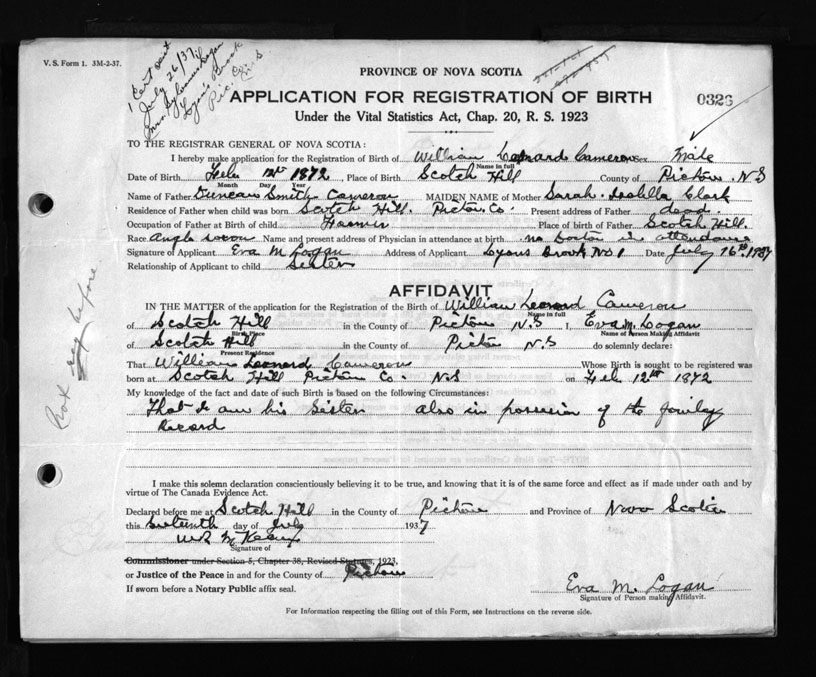 V. S. Form 1. 3M-2-37.
1 Cert sent
July 26/37
Lyons Brook
Pic. Co. N.S
PROVINCE OF NOVA SCOTIA
APPLICATION FOR REGISTRATION OF BIRTH
0326
Under the Vital Statistics Act, Chap. 20, R. S. 1923
TO THE REGISTRAR GENERAL OF NOVA SCOTIA:
I hereby make application for the Registration of Birth of William Leonard Cameron Sex Male
Name in full
Date of Birth Feb 12th 1872, Place of Birth Scotch Hill County of Pictou N.S
Month Day Year
Name of Father Duncan Smith Cameron MAIDEN NAME of Mother Sarah Isabella Clark
Residence of Father when child was born Scotch Hill. Pictou Co. Present address of Father dead
Occupation of Father at Birth of child Farmer Place of birth of Father Scotch Hill.
Race Anglo saxon Name and present address of Physician in attendance at birth no Doctor in attendance
Signature of Applicant Eva M Logan Address of Applicant Lyons Brook No 1 Date July 16th 1937
Relationship of Applicant to child Sister
AFFIDAVIT
IN THE MATTER of the application for the Registration of the Birth of William Leonard Cameron
Name in full
of Scotch Hill in the County of Pictou N.S I, Eva M. Logan
Birth Place Name of Person Making Affidavit
of Scotch Hill in the County of Pictou N.S do solemnly declare:
Present Residence
That William Leonard Cameron Whose Birth is sought to be registered was
born at Scotch Hill Pictou Co. N.S on Feb 12th 1872
My knowledge of the fact and date of such Birth is based on the following Circumstances:
That I am his Sister also in possesion of the family
Record
Not reg before
I make this solemn declaration conscientiously believing it to be true, and knowing that it is of the same force and effect as if made under oath and by
virtue of The Canada Evidence Act.
Declared before me at Scotch Hill in the County of Pictou and Province of Nova Scotia
this sixteenth day of July 1937
Signature of
Commissioner under Section 5, Chapter 38, Revised Statutes, 1923,
or Justice of the Peace in and for the County of Pictou
If sworn before a Notary Public affix seal.
Eva M. Logan
Signature of Person making Affidavit.
For Information respecting the filling out of this Form, see Instructions on the reverse side.